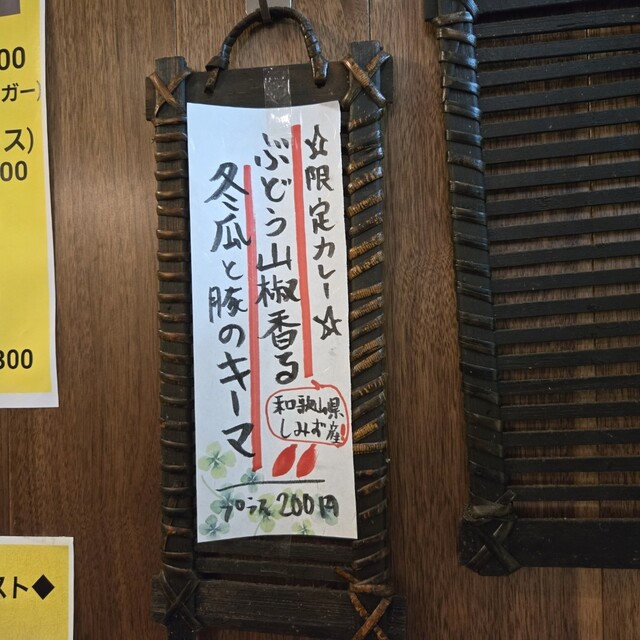 ☆限定カレー☆
ぶどう山椒香る
冬瓜と豚のキーマ
和歌山県
しみず産!
プラス200円
00
ガー)
ス)
00
300
スト◆